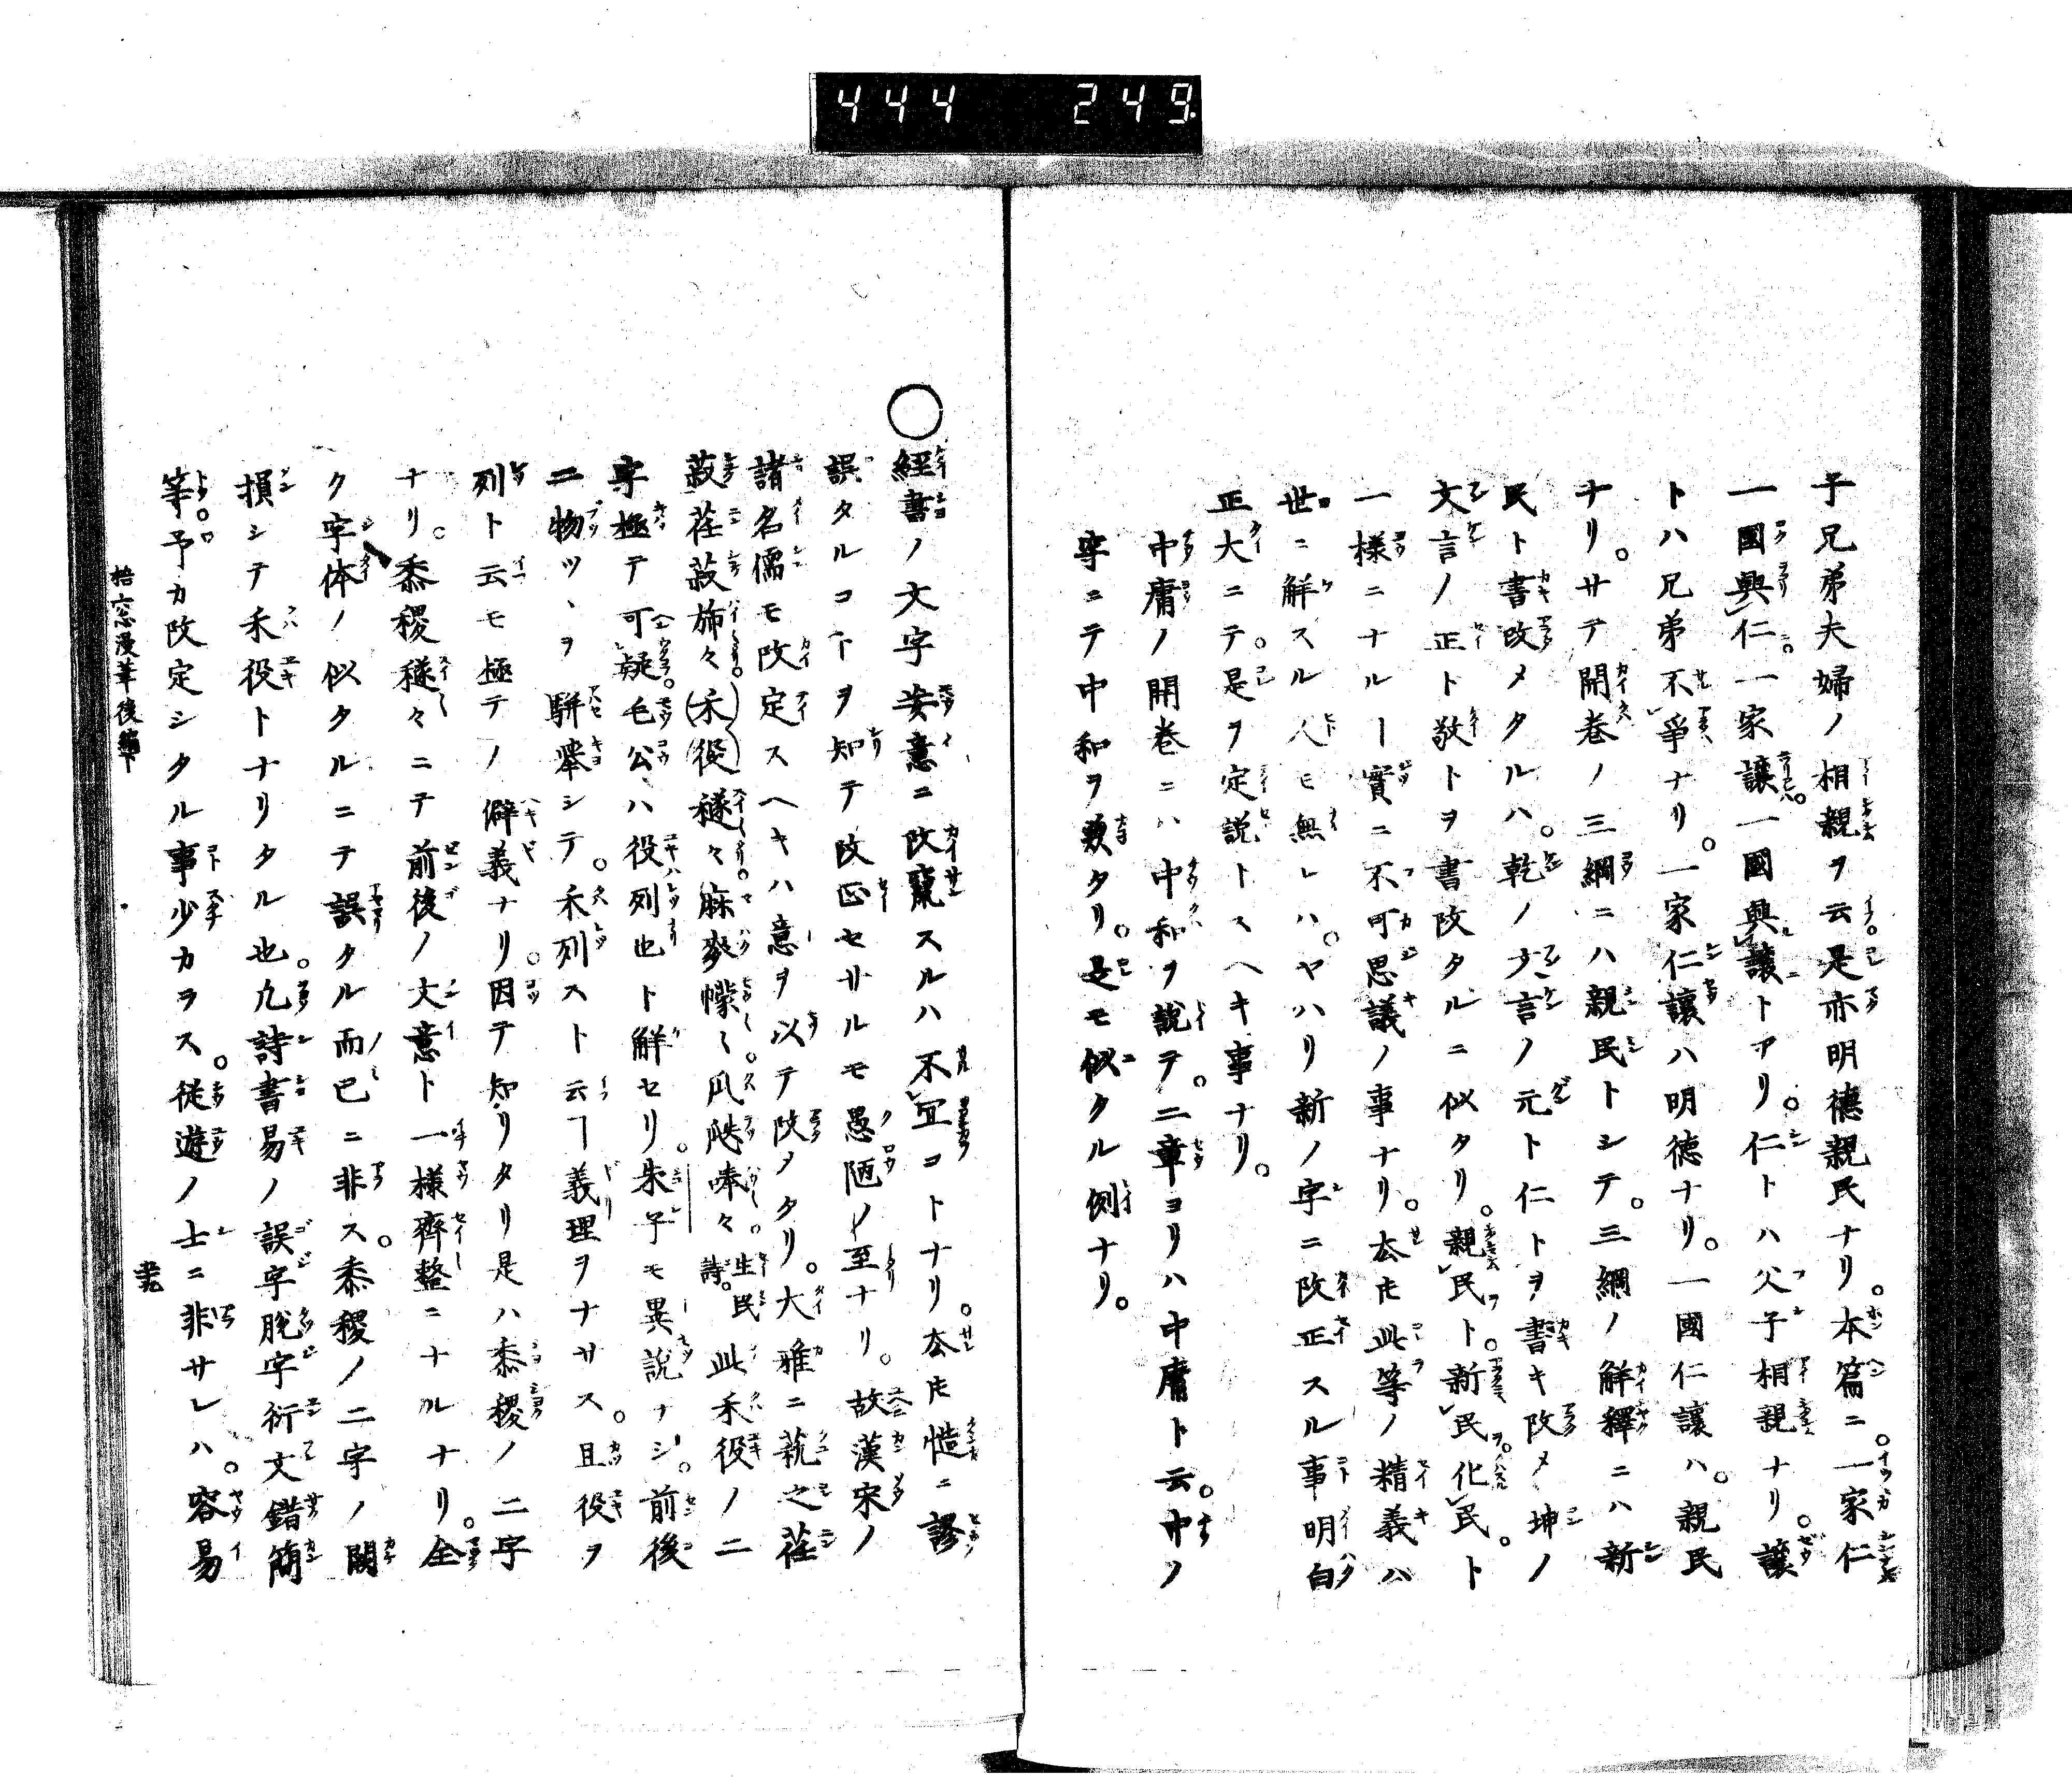 444 249.
子兄弟夫婦ノ相親ヲ云是亦明德親民ナリ。本篇ニ。一家仁
一國興仁。一家讓。一國興讓トアリ。仁トハ父子相親ナリ。讓
トハ兄弟不爭ナリ。一家仁讓ハ明德ナリ。一國仁讓ハ。親民
ナリ。サテ開卷ノ三綱ニハ親民トシテ。三綱ノ解釋ニハ新
民ト書改メタルハ。乾ノ文言ノ元ト仁トヲ書キ改メ坤ノ
文言ノ正ト敬トヲ書改タルニ似タリ。親民ト。新民化民。ト
一樣ニナルヿ實ニ不可思議ノ事ナリ。去𪜈此等ノ精義ハ
世ニ解スル人モ無レハ。ヤハリ新ノ字ニ改正スル事明白
正大ニテ。是ヲ定說トスヘキ事ナリ。
中庸ノ開卷ニハ中和ヲ說テ。二章ヨリハ中庸ト云。中ノ
字ニテ中和ヲ兼タリ。是モ似タル例ナリ。
○經書ノ文字妄意ニ改竄スルハ不宜コトナリ。去𪜈慥ニ謬
誤タルコトヲ知テ改正セサルモ愚陋ノ至ナリ。故漢宋ノ
諸名儒モ改定スヘキハ意ヲ以テ改メタリ。大雅ニ蓺之荏
菽荏菽旆々(禾)(役)穟々麻麥幪〻瓜瓞唪々詩。生民此禾役ノ二
字極テ可疑。毛公ハ役列也ト解セリ。朱子モ異說ナシ。前後
ニ物ツヽヲ駢擧シテ。禾列スト云ヿ義理ヲナサス。且役ヲ
列ト云モ極テノ僻義ナリ。因テ知リタリ是ハ黍稷ノ二字
ナリ。黍稷穟々ニテ前後ノ文意ト一樣齊整ニナルナリ。全
ク字体ノ似タルニテ誤タル而已ニ非ス。黍稷ノ二字ノ闕
損シテ禾役トナリタル也。凡詩書易ノ誤字脫字衍文錯簡
等。予カ改定シタル事少カラス。從遊ノ士ニ非サレハ。容易
梧窓漫筆後編下